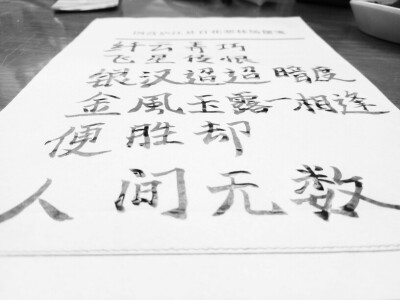 纤云弄巧
飞星传恨
银汉迢迢暗度
金風玉露一相逢
便胜却
人间无数